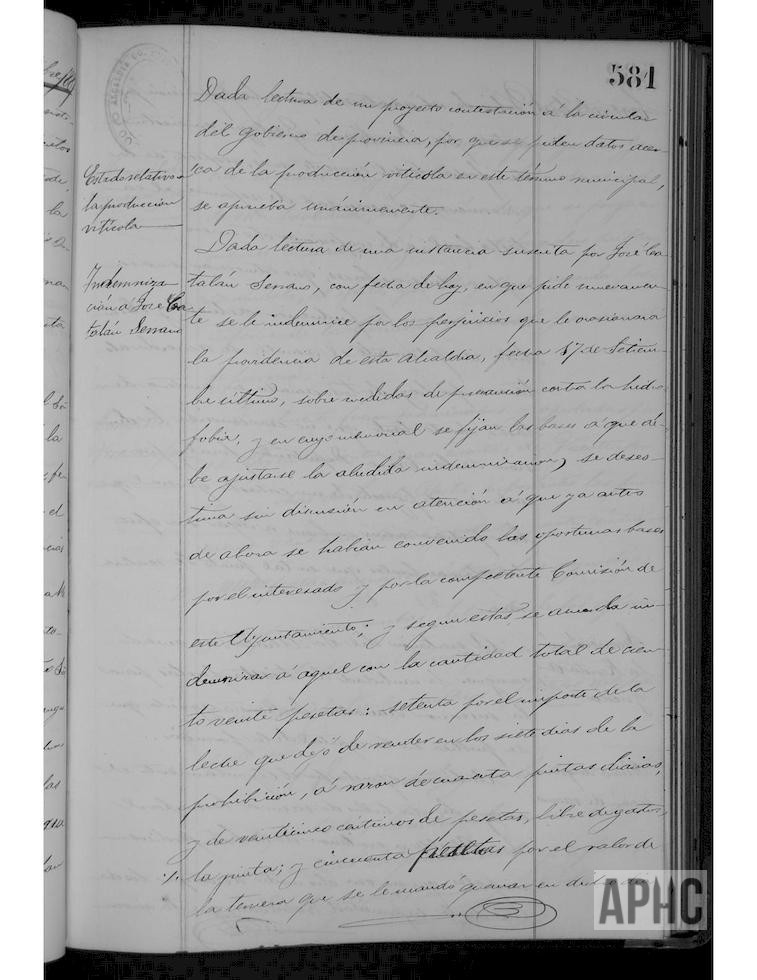 581
Dada lectura de un proyecto contestación á la circular
del Gobierno de provincia, por que se piden datos acer-
ca de la producción vitícola en este término municipal,
se aprueba unánimemente.
Estado relativo a
la producción
vitícola
Dada lectura de una instancia suscrita por José Ca-
talán Serrano, con fecha de hoy, en que pide nuevamen-
te se le indemnice por los perjuicios que le ocasionara
la providencia de esta Alcaldía, fecha 17 de Setiem-
bre último, sobre medidas de precaución contra la hidro
fobia, y en cuyo memorial se fijan las bases á que de-
be ajustarse la aludida indemnización, se deses-
tima sin discusión en atención á que ya antes
de ahora se habían convenido las oportunas bases
por el interesado y por la competente Comisión de
este Ayuntamiento; y segun estas se acuerda in-
demnizar á aquel con la cantidad total de cien-
to veinte pesetas: setenta por el importe de la
leche que dejó de vender en los siete días de la
prohibición, á razon de cuarenta pintas diarias,
y de veinticinco céntimos de pesetas, libre de gastos,
la pinta; y cincuenta pesetas por el valor de
la ternera que se le mandó quemar en
Indemniza
ción á José Ca-
talán Serrano
APHC